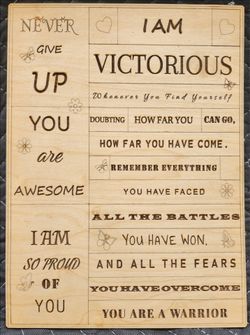 NEVER
GIVE
UP
YOU
are
AWESOME
I AM
SO PROUD
OF
YOU
I AM
VICTORIOUS
Whenever You Find Yourself
DOUBTING HOW FAR YOU CAN GO,
HOW FAR YOU HAVE COME.
REMEMBER EVERYTHING
YOU HAVE FACED
ALL THE BATTLES
YOU HAVE WON.
AND ALL THE FEARS
YOU HAVE OVERCOME
YOU ARE A WARRIOR